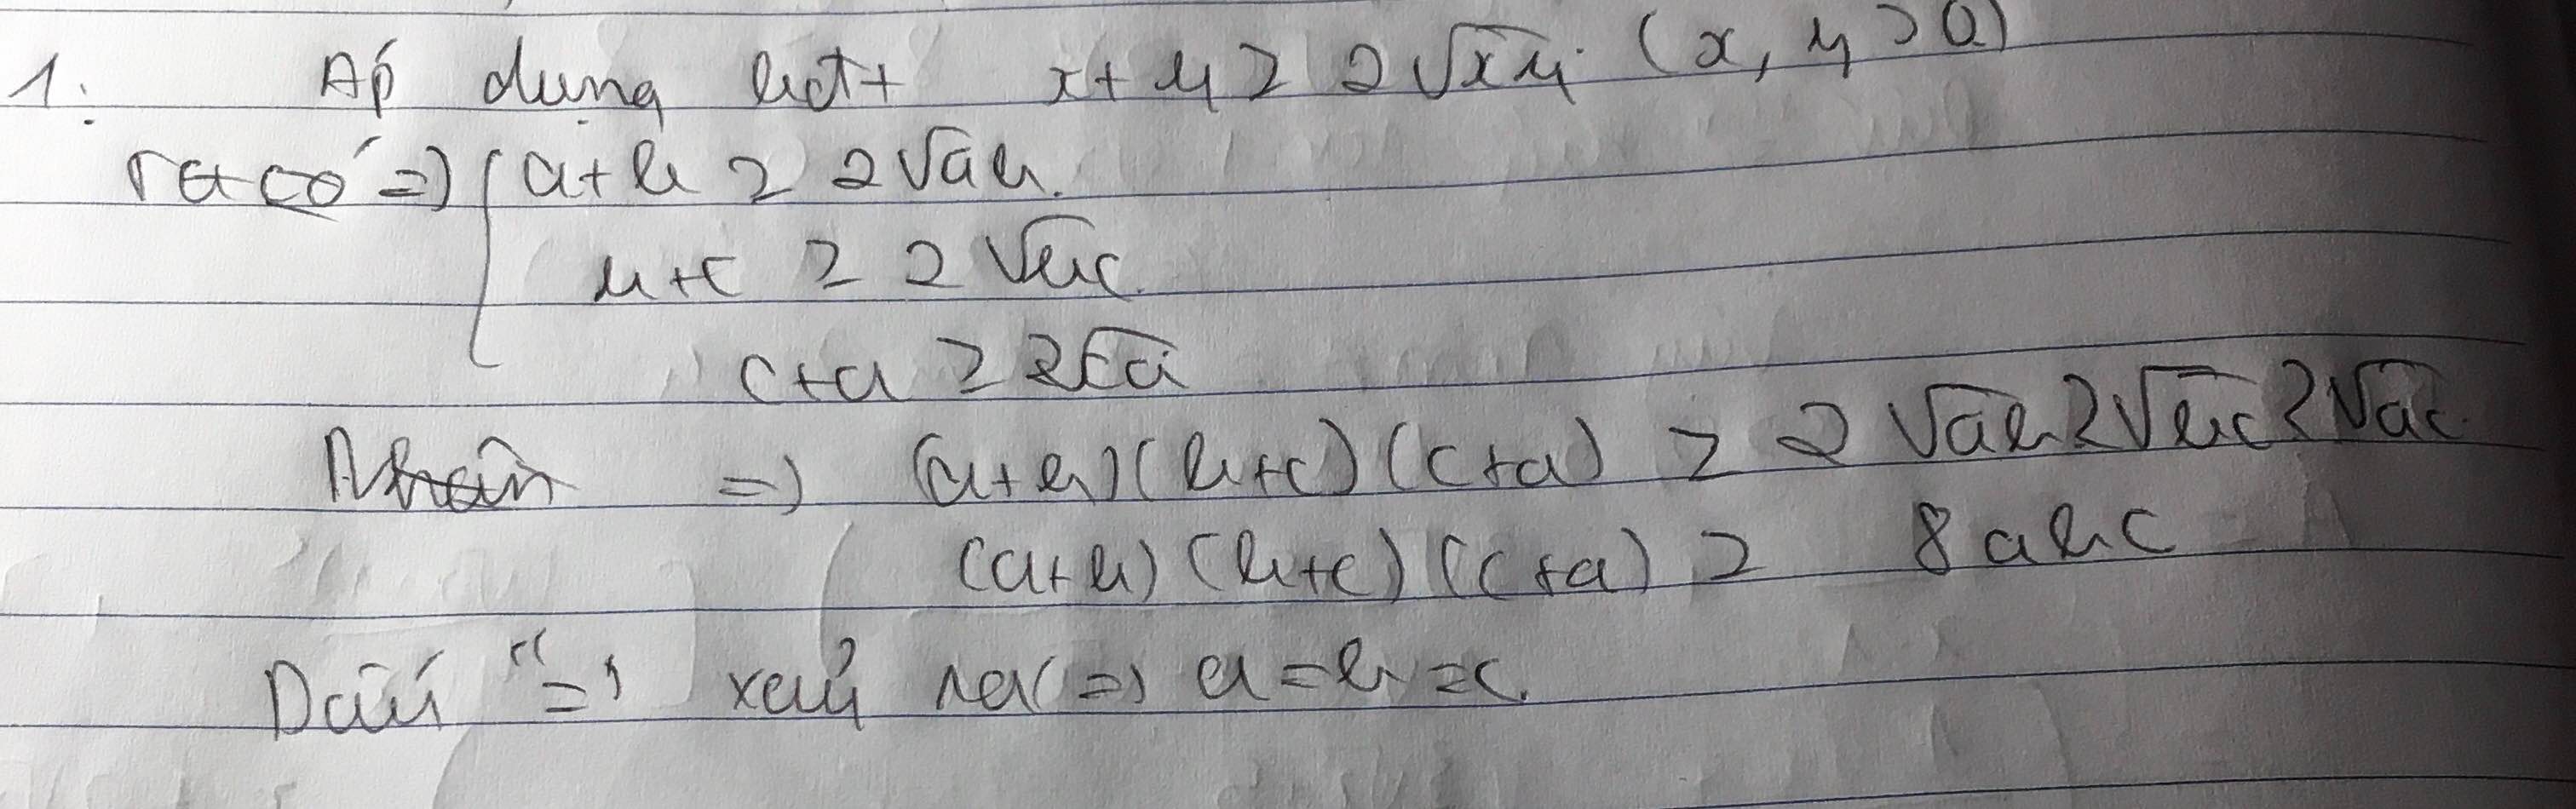 1: Áp dụng bđt x+y ≥ 2√xy (x, y > 0)
ta có => { a+b ≥ 2√ab.
b+c ≥ 2√bc
c+a ≥ 2√ca
=> (a+b)(b+c)(c+a) ≥ 2√ab 2√bc 2√ac
(a+b)(b+c)(c+a) ≥ 8abc
Dấu "=" xảy ra (=) a=b=c.